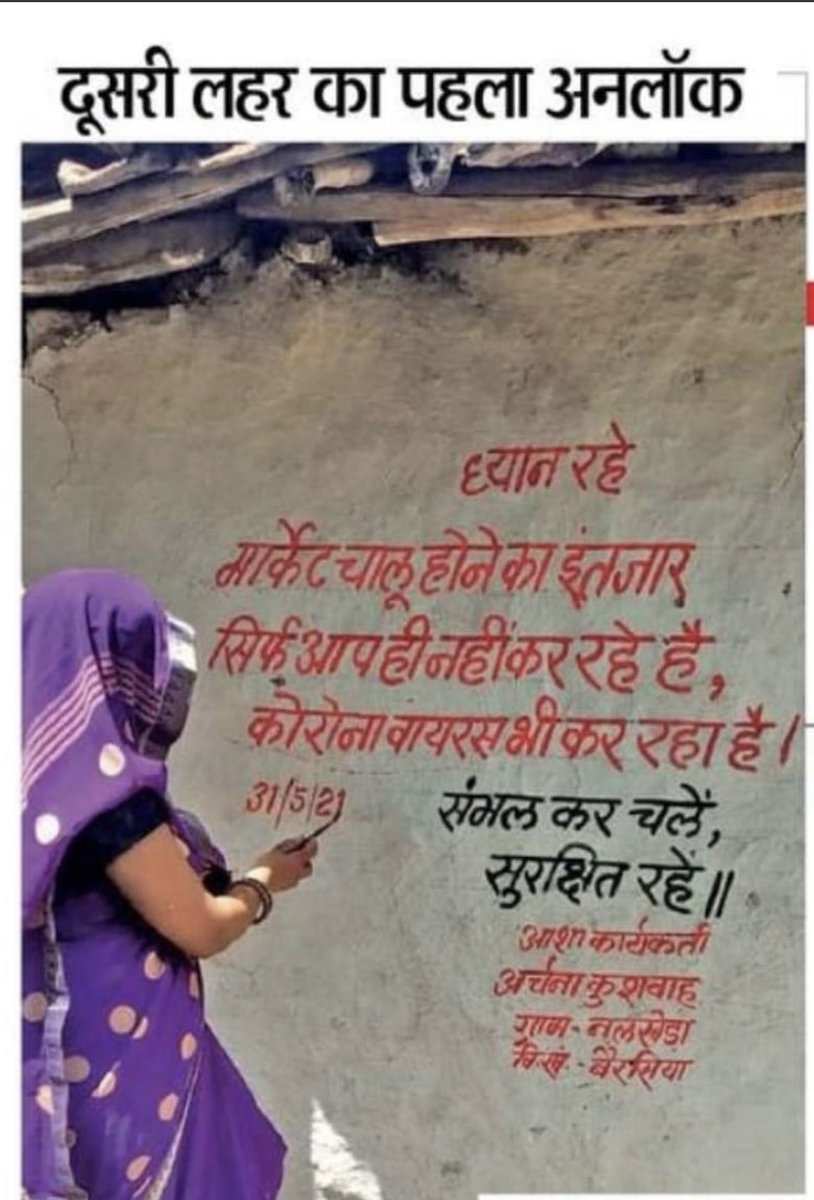 दूसरी लहर का पहला अनलॉक
ध्यान रहे
मार्केट चालू होने का इंतजार
सिर्फ आप ही नहीं कर रहे है,
कोरोना वायरस भी कर रहा है।
31/5/21
संभल कर चलें,
सुरक्षित रहें॥
आशा कार्यकर्ता
अर्चना कुशवाह
ग्राम - नलखेड़ा
वि.खं. - बैरसिया